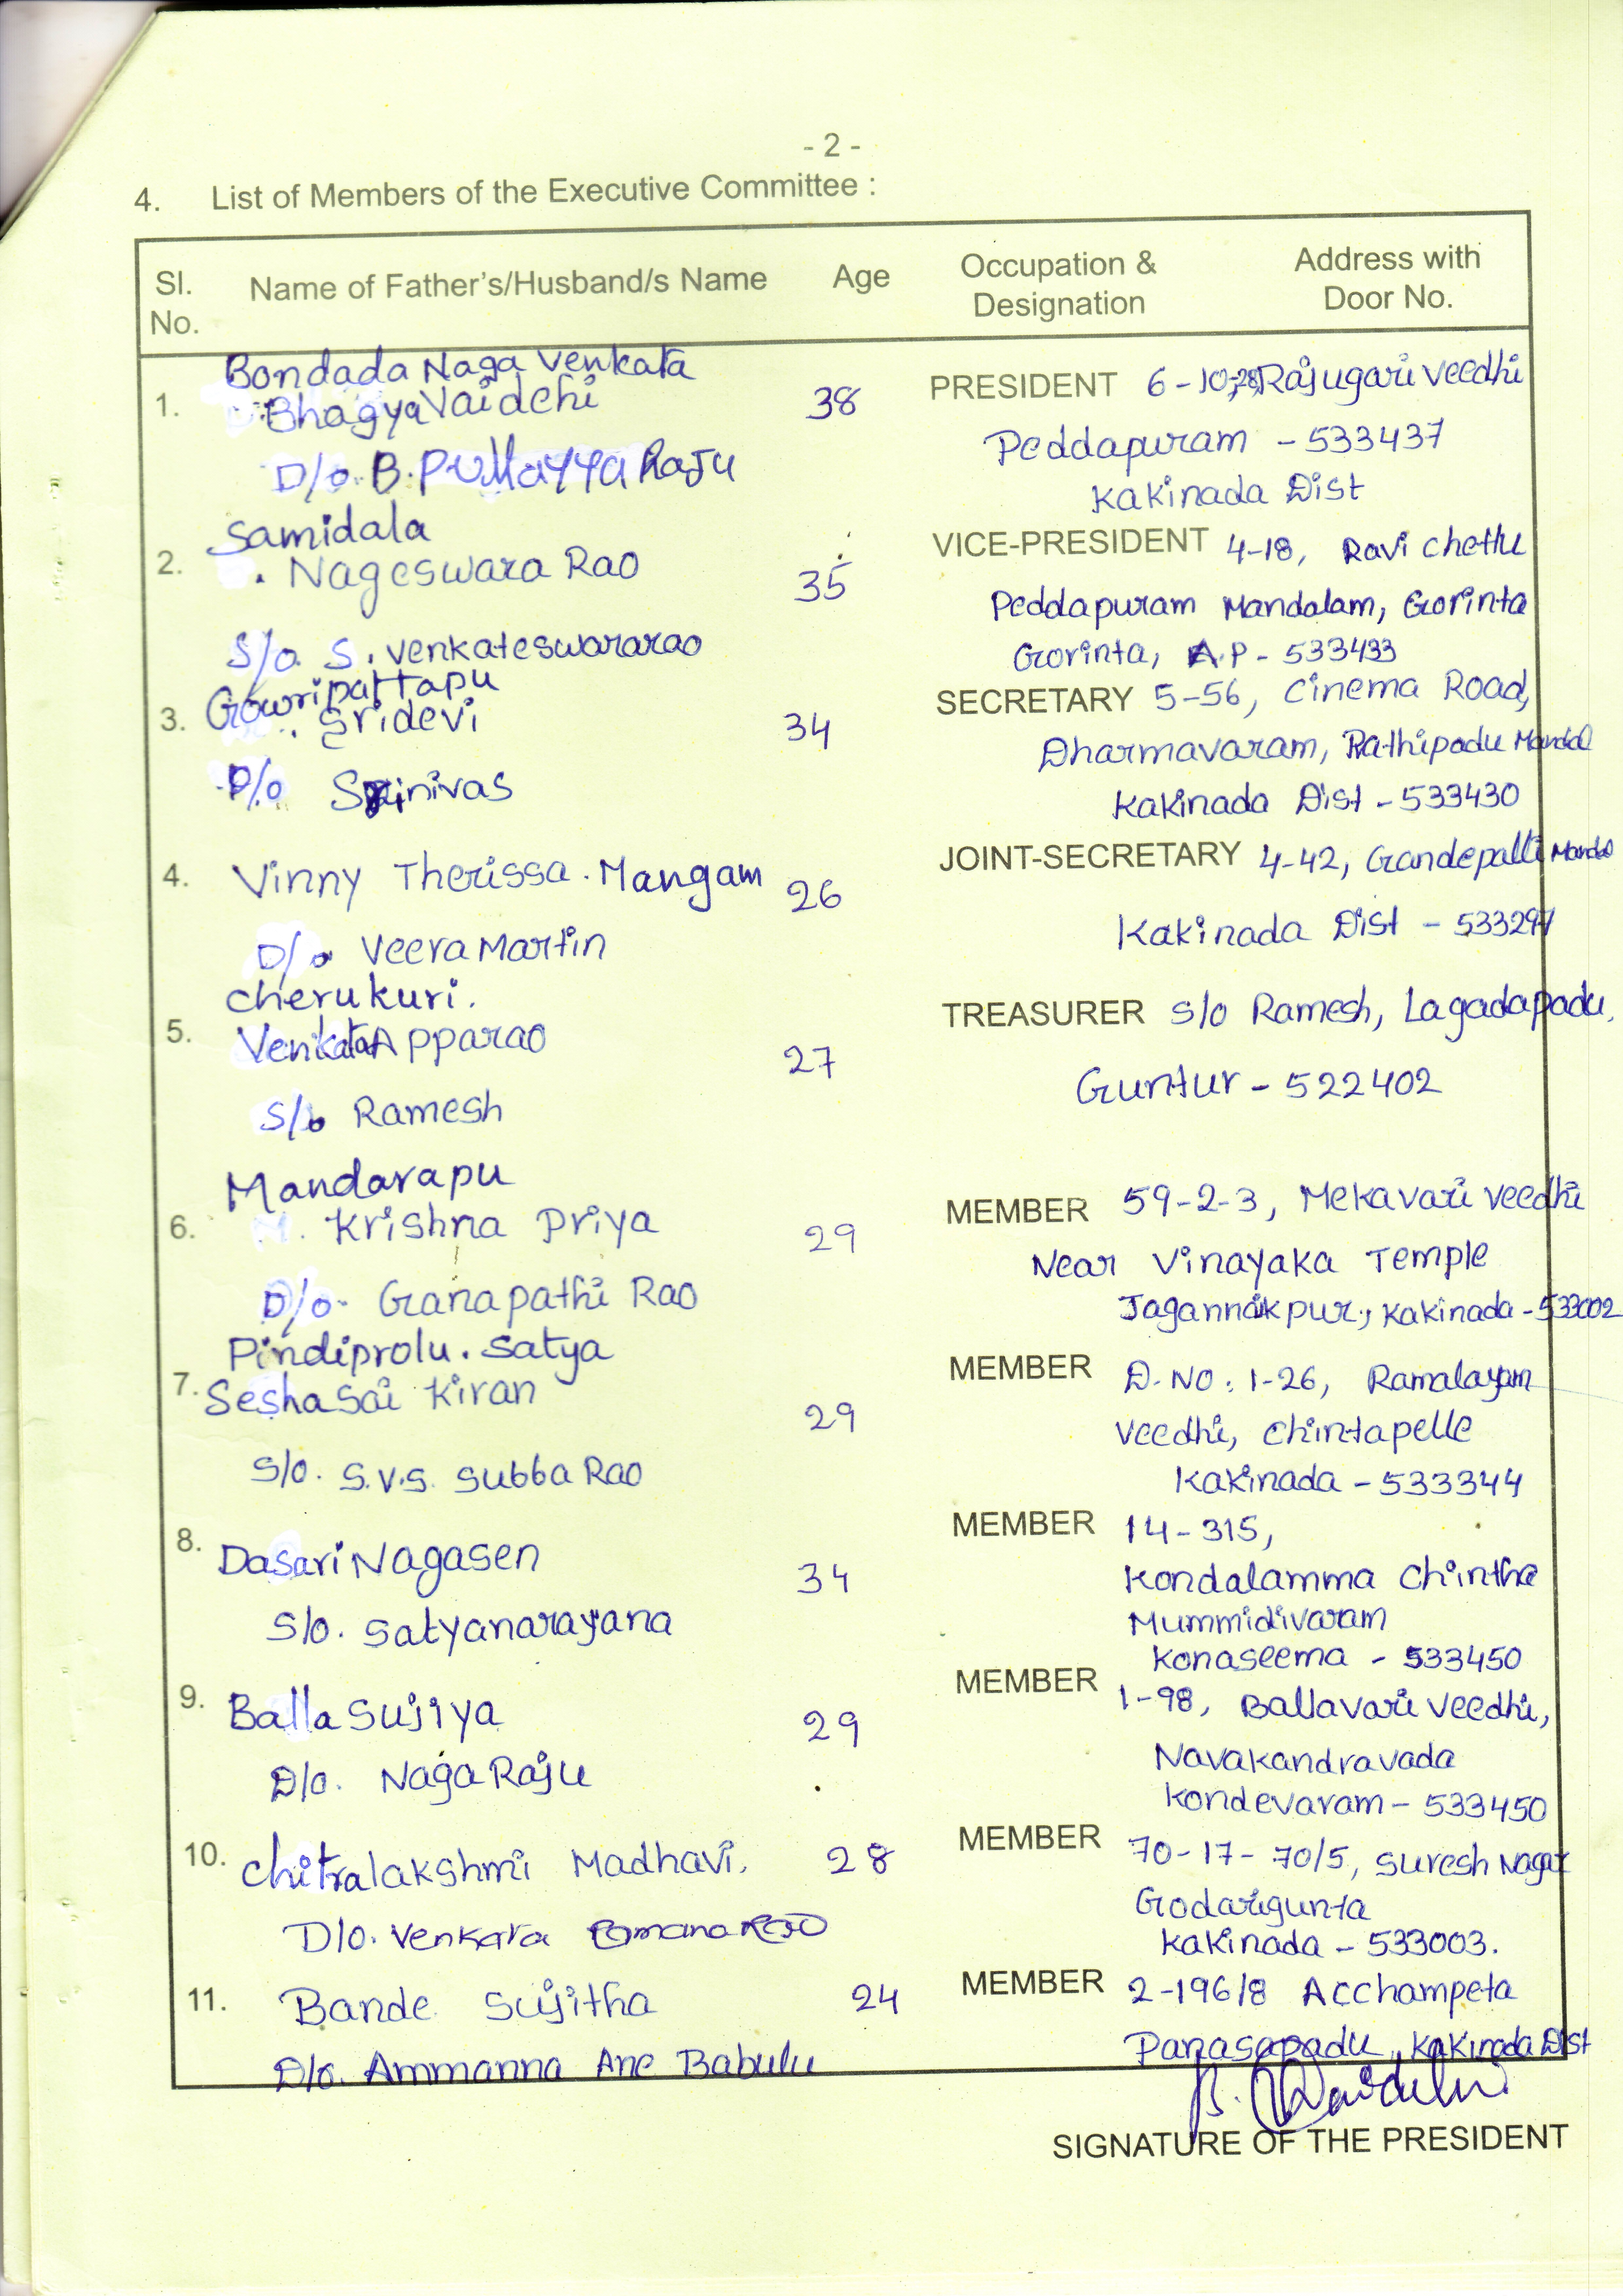 - 2 -
4. List of Members of the Executive Committee :
Sl. No. Name of Father's/Husband/s Name Age Occupation & Designation Address with Door No.
Bondada Naga Venkata
1. Bhagya Vaidehi 38 PRESIDENT 6-10-28, Rajugari Veedhi
D/o. B. Pullayya Raju Peddapuram - 533437
Kakinada Dist
Samidala
2. Nageswara Rao 35 VICE-PRESIDENT 4-18, Ravi chettu
Peddapuram Mandalam, Gorinta
S/o. S. Venkateswararao Gorinta, A.P - 533433
Gowripattapu
3. Sridevi 34 SECRETARY 5-56, Cinema Road,
Dharmavaram, Prathipadu Mandal
D/o Srinivas Kakinada Dist - 533430
4. Vinny Therissa. Mangam 26 JOINT-SECRETARY 4-42, Gandepalli Mandal
D/o Veera Martin Kakinada Dist - 533297
Cherukuri.
5. Venkata Apparao 27 TREASURER S/o Ramesh, Lagadapadu,
S/o Ramesh Guntur - 522402
Mandarapu
6. Krishna Priya 29 MEMBER 59-2-3, Mekavari Veedhi
Near Vinayaka Temple
D/o. Ganapathi Rao Kakinada - 533002
Pindiprolu. Satya
7. Sesha Sai Kiran 29 MEMBER D.NO: 1-26, Ramalayam
Veedhi, Chintapelle
S/o. S.V.S. Subba Rao Kakinada - 533344
8. Dasari Nagasen 34 MEMBER 14-315,
Kondalamma Chintha
S/o. Satyanarayana Mummidivaram
Konaseema - 533450
9. Balla Sujiya 29 MEMBER 1-98, Ballavari Veedhi,
D/o. Naga Raju Navakandravada
Kondevaram - 533450
10. Chitralakshmi Madhavi. 28 MEMBER 70-17-70/5, Suresh Nagar
Godarigunta
D/o. Venkata Ramana Rao Kakinada - 533003.
11. Bande Sujitha 24 MEMBER 2-196/8 Acchampeta
D/o. Ammanna Ane Babulu Panasapadu, Kakinada Dist
B. Vaidehi
SIGNATURE OF THE PRESIDENT